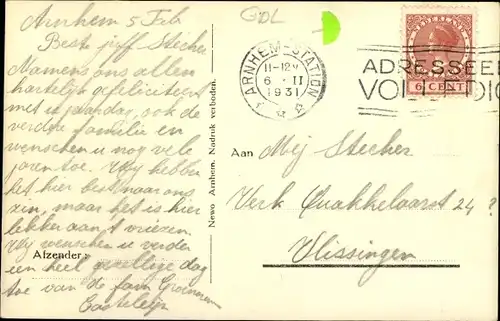 Arnhem 5 Feb
Beste juff Stecher
Namens ons allen
hartelijk gefeliciteert
met u jaardag, ook de
verdere familie en
wenschen u nog vele
jaren toe. Wij hebben
het hier best naar ons
zin, maar het is hier
lekker aan t vriezen.
Wij wenschen u verder
een heel gezellige dag
toe van de fam
Casteleijn
Afzender:
Newo Arnhem. Nadruk verboden.
GDL
ARNHEM-STATION
11-12V
6 II
1931
NEDERLAND
6 CENT
ADRESSEER
VOLLEDIG
Aan Mej Stecher
Verk Quakkelaarst 24 ?
Vlissingen